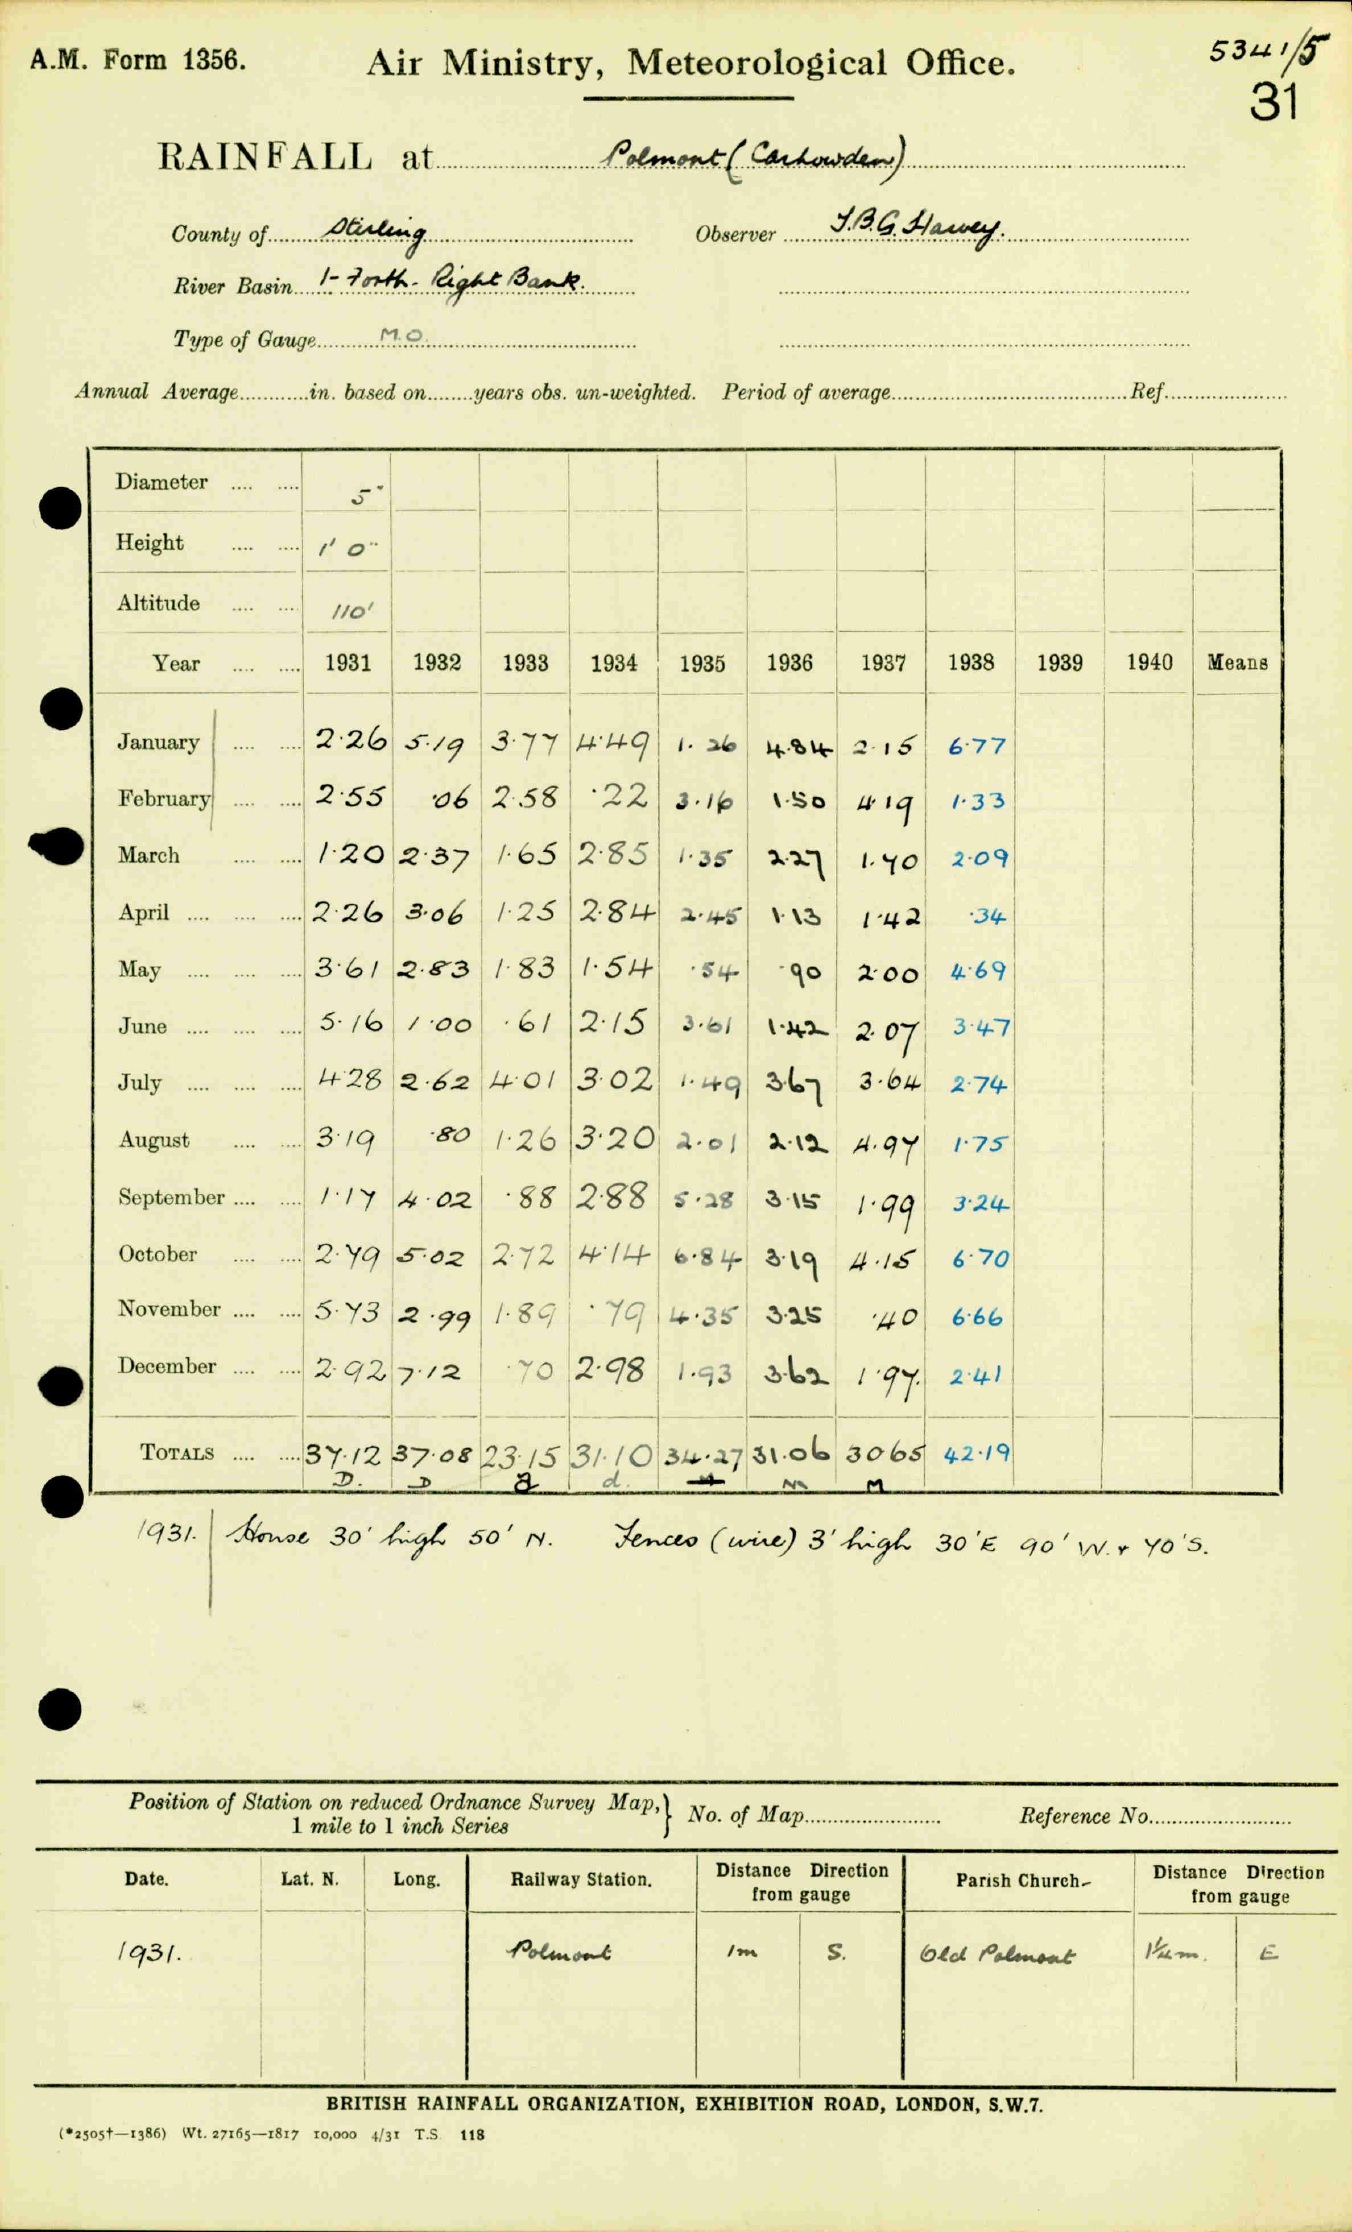 A.M. Form 1356.
Air Ministry, Meteorological Office.
5341/5
31
RAINFALL at Polmont (Carhowden)
County of Stirling Observer J.B.G. Harvey.
River Basin 1- Forth- Right Bank.
Type of Gauge M.O.
Annual Average in. based on years obs. un-weighted. Period of average Ref.
Diameter 5"
Height 1' 0"
Altitude 110'
Year 1931 1932 1933 1934 1935 1936 1937 1938 1939 1940 Means
January 2.26 5.19 3.77 4.49 1.26 4.84 2.15 6.77
February 2.55 .06 2.58 .22 3.16 1.50 4.19 1.33
March 1.20 2.37 1.65 2.85 1.35 2.27 1.40 2.09
April 2.26 3.06 1.25 2.84 2.45 1.13 1.42 .34
May 3.61 2.83 1.83 1.54 .54 .90 2.00 4.69
June 5.16 1.00 .61 2.15 3.61 1.42 2.07 3.47
July 4.28 2.62 4.01 3.02 1.49 3.67 3.64 2.74
August 3.19 .80 1.26 3.20 2.01 2.12 4.97 1.75
September 1.17 4.02 .88 2.88 5.28 3.15 1.99 3.24
October 2.79 5.02 2.72 4.14 6.84 3.19 4.15 6.70
November 5.73 2.99 1.89 .79 4.35 3.25 .70 6.66
December 2.92 7.12 .70 2.98 1.93 3.62 1.97 2.41
TOTALS 37.12 37.08 23.15 31.10 34.27 31.06 30.65 42.19
D. D a d. M M
1931. House 30' high 50' N. Fences (wire) 3' high 30'E 90' W. + 70'S.
Position of Station on reduced Ordnance Survey Map, 1 mile to 1 inch Series } No. of Map Reference No.
Date. Lat. N. Long. Railway Station. Distance Direction from gauge Parish Church. Distance Direction from gauge
1931. Polmont 1m S. Old Polmont 1¼m. E
BRITISH RAINFALL ORGANIZATION, EXHIBITION ROAD, LONDON, S.W.7.
(*2505†—1386) Wt. 27165—1817 10,000 4/31 T.S. 118